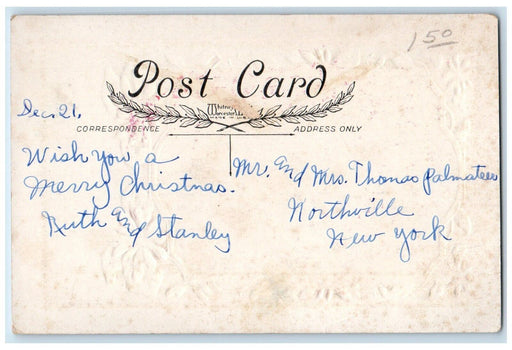 1 50
Post Card
Whitney
Worcester
MADE
CORRESPONDENCE
ADDRESS ONLY
Dec. 21,
Wish you a
Merry Christmas.
Ruth and Stanley
Mr. and Mrs. Thomas Palmateer
Northville
New York